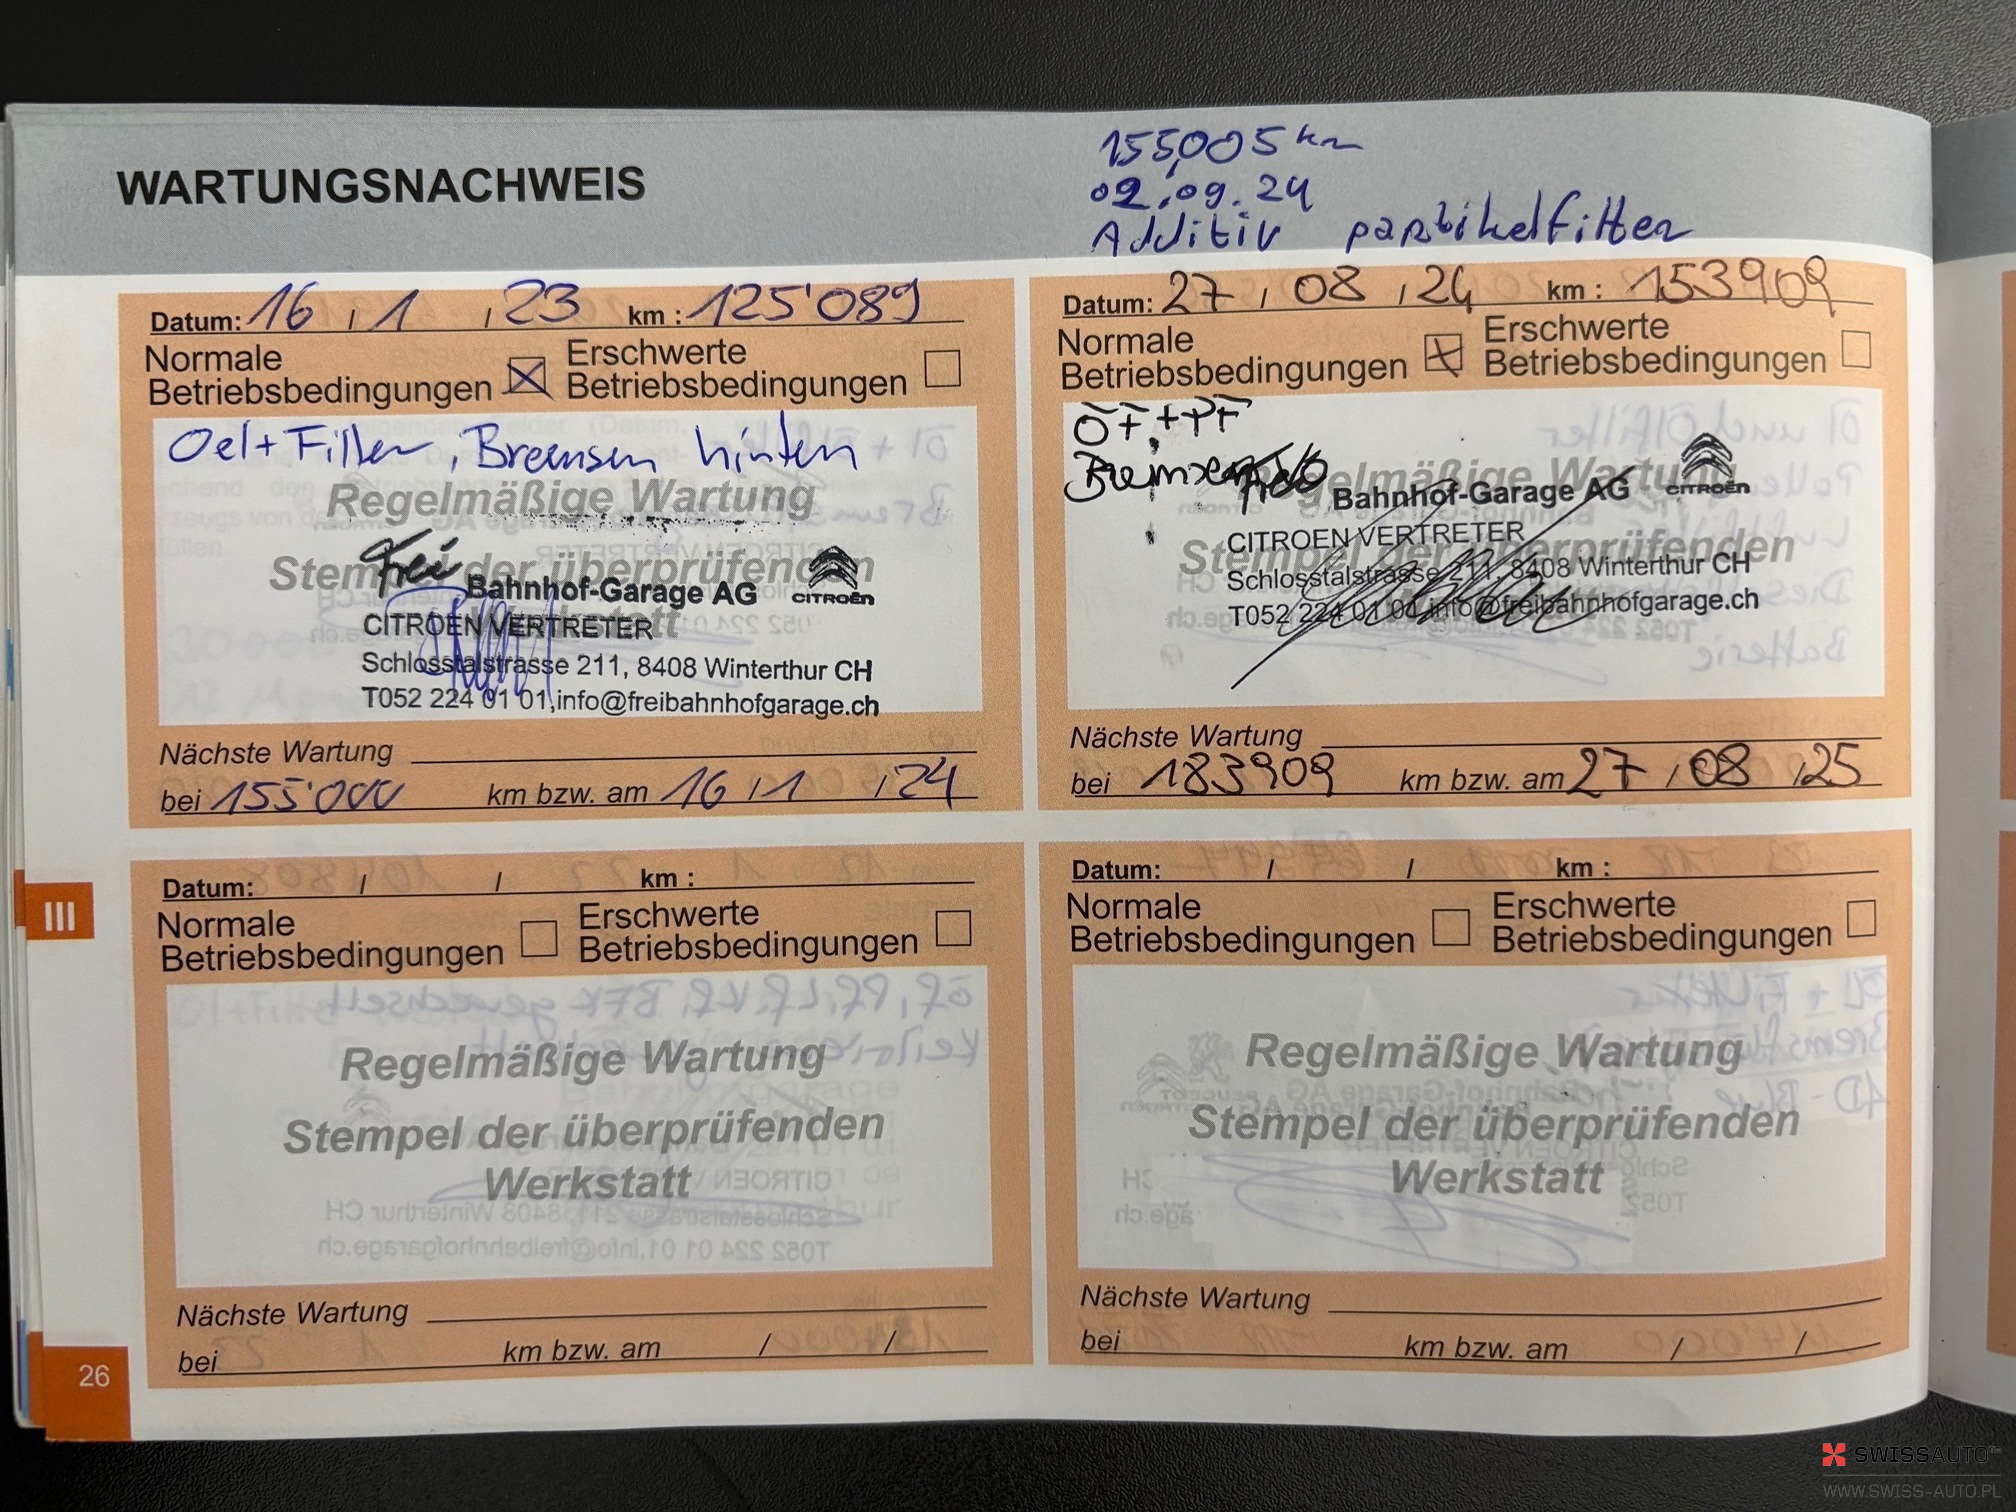 WARTUNGSNACHWEIS
155,005 km
02.09.24
Additiv partikelfilter
Datum: 16 / 1 / 23 km : 125'089
Normale Betriebsbedingungen
Erschwerte Betriebsbedingungen
Oel + Filter, Bremsen hinten
Regelmäßige Wartung
Stempel der überprüfenden Werkstatt
Frei Bahnhof-Garage AG
CITROËN
CITROEN VERTRETER
Schlosstalstrasse 211, 8408 Winterthur CH
T052 224 01 01,info@freibahnhofgarage.ch
Nächste Wartung
bei 155'000 km bzw. am 16 / 1 / 24
Datum: 27 / 08 / 24 km : 153909
Normale Betriebsbedingungen
Erschwerte Betriebsbedingungen
ÖF + PF
Bremsen
Regelmäßige Wartung
Bahnhof-Garage AG
CITROËN
CITROEN VERTRETER
Stempel der überprüfenden
Schlosstalstrasse 211, 8408 Winterthur CH
T052 224 01 01,info@freibahnhofgarage.ch
Nächste Wartung
bei 183909 km bzw. am 27 / 08 / 25
Datum: / / km :
Normale Betriebsbedingungen
Erschwerte Betriebsbedingungen
Regelmäßige Wartung
Stempel der überprüfenden
Werkstatt
Nächste Wartung
bei km bzw. am / /
Datum: / / km :
Normale Betriebsbedingungen
Erschwerte Betriebsbedingungen
Regelmäßige Wartung
Stempel der überprüfenden
Werkstatt
Nächste Wartung
bei km bzw. am / /
III
26
SWISSAUTO
WWW.SWISS-AUTO.PL